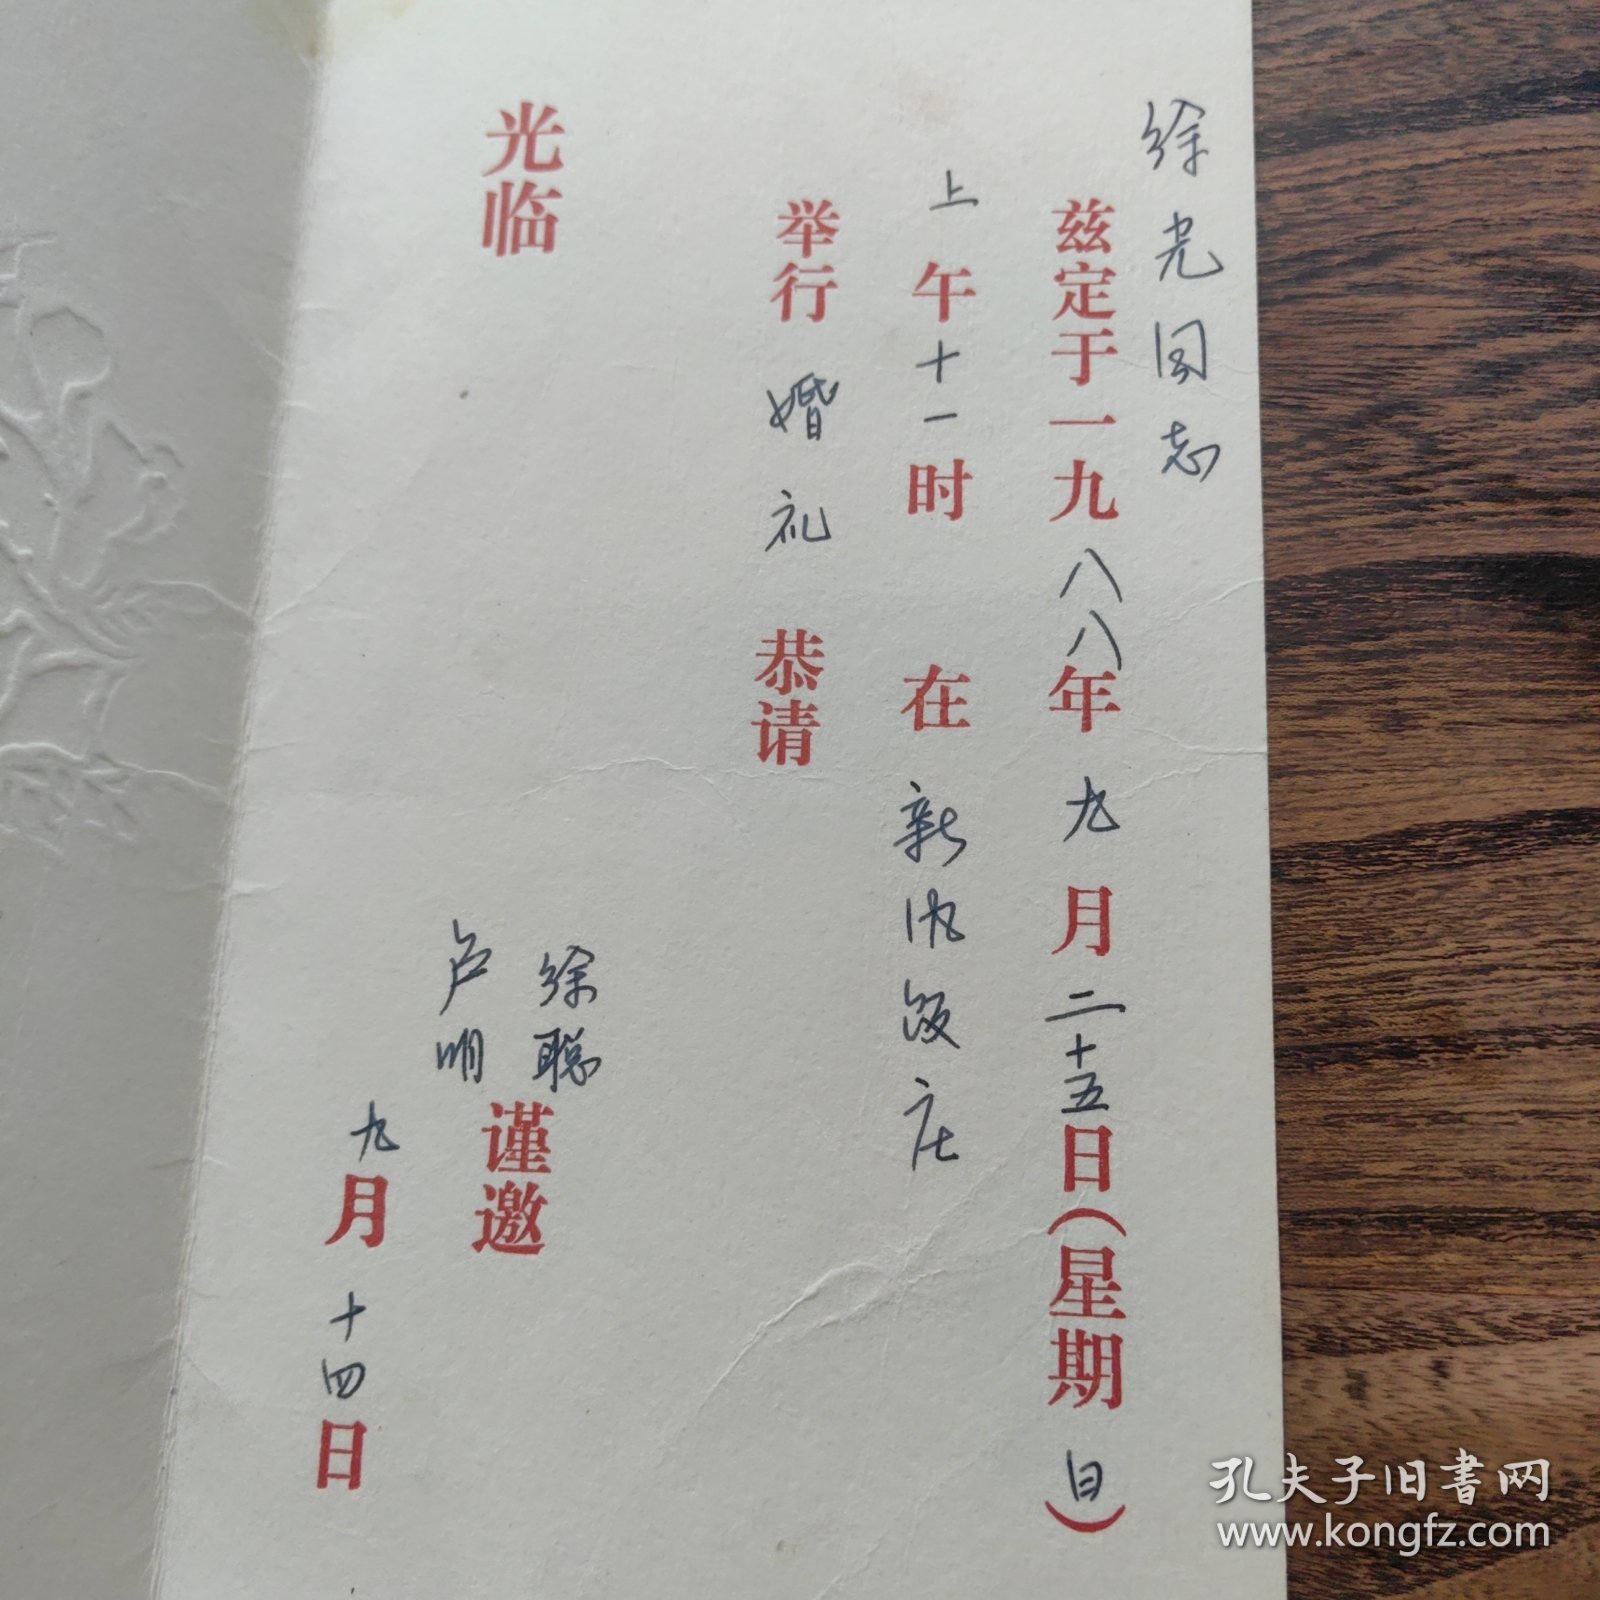 徐光同志
兹定于一九八八年九月二十五日(星期日)
上午十一时 在新 饭店
举行婚礼 恭请
光临
徐聪
卢明
谨邀
九月十四日
孔夫子旧书网
www.kongfz.com